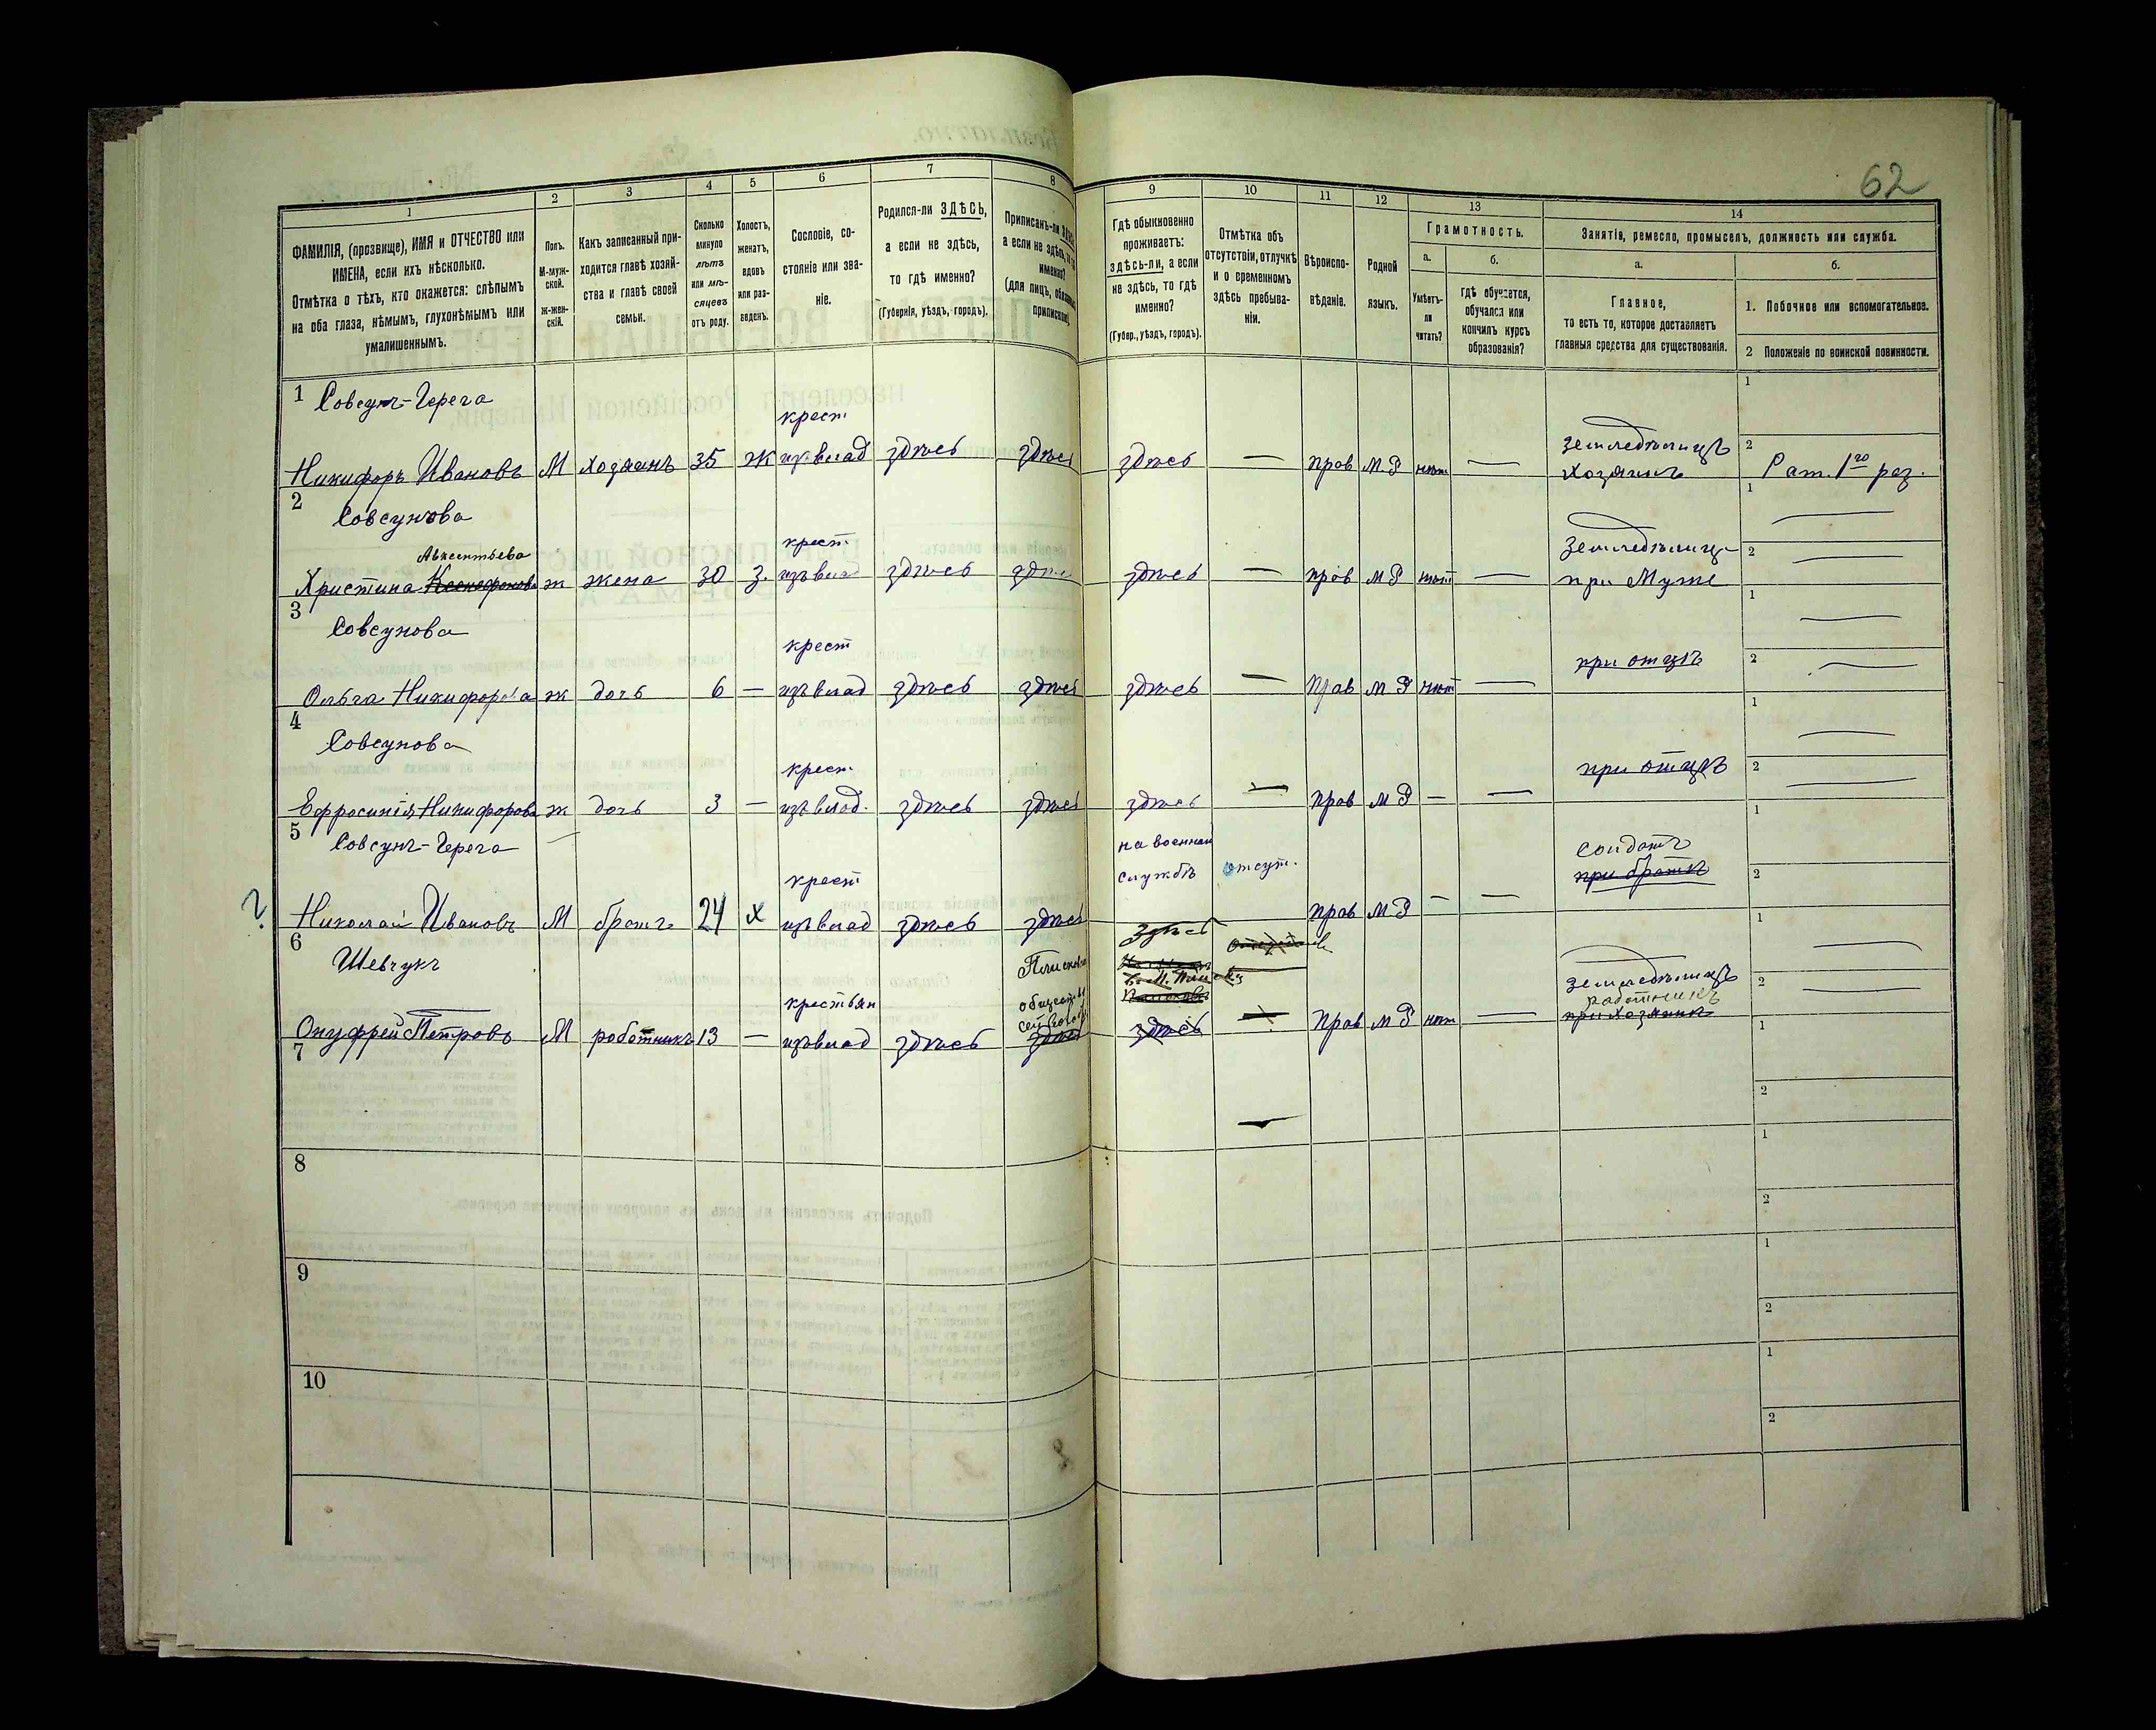 62
1
ФАМИЛІЯ, (прозвище), ИМЯ и ОТЧЕСТВО или
ИМЕНА, если ихъ нѣсколько.
Отмѣтка о тѣхъ, кто окажется: слѣпымъ
на оба глаза, нѣмымъ, глухонѣмымъ или
умалишеннымъ.
2
Полъ.
М-муж-
ской.
ж-жен-
скій.
3
Какъ записанный при-
ходится главѣ хозяй-
ства и главѣ своей
семьи.
4
Сколько
минуло
лѣтъ
или мѣ-
сяцевъ
отъ роду.
5
Холостъ,
женатъ,
вдовъ
или раз-
веденъ.
6
Сословіе, со-
стояніе или зва-
ніе.
7
Родился-ли ЗДѢСЬ,
а если не здѣсь,
то гдѣ именно?
(Губернія, уѣздъ, городъ).
8
Приписанъ-ли
а если не здѣсь,
именно?
(для лицъ,
9
Гдѣ обыкновенно
проживаетъ:
здѣсь-ли, а если
не здѣсь, то гдѣ
именно?
(Губер., уѣздъ, городъ).
10
Отмѣтка объ
отсутствіи, отлучкѣ
и о временномъ
здѣсь пребыва-
ніи.
11
Вѣроиспо-
вѣданіе.
12
Родной
языкъ.
13
Грамотность.
а.
Умѣетъ-
ли
читать?
б.
гдѣ обучается,
обучался или
кончилъ курсъ
образованія?
14
Занятіе, ремесло, промыселъ, должность или служба.
а.
Главное,
то есть то, которое доставляетъ
главныя средства для существованія.
б.
1. Побочное или вспомогательное.
2 Положеніе по воинской повинности.
1 Совсунъ-Черега
крест
земледѣлецъ
1
Никифоръ Ивановъ М хозяинъ 35 ж изъ влад здѣсь здѣсь здѣсь — прав М Р нѣт — хозяинъ 2 Рат. 1го раз.
2 Совсунова
Авксентьева
крест земледѣлецъ
1
Христина ж жена 30 з. изъ влад здѣсь здѣсь здѣсь — прав М Р нѣт — при Мужѣ 2
3 Совсунова
крест при отцѣ
1
Ольга Никифорова ж дочь 6 — изъ влад здѣсь здѣсь здѣсь — прав М Р нѣт — 2
4 Совсунова
крест при отцѣ
1
Ефросинія Никифорова ж дочь 3 — изъ влад. здѣсь здѣсь здѣсь — прав М Р — — 2
5 Совсунъ-Черега
на военной
службѣ отсут.
солдатъ
при братѣ
1
крест
? Николай Ивановъ М братъ 24 х изъ влад здѣсь здѣсь прав М Р — — 2
6 Шевчукъ
здѣсь
крестьян
земледѣлецъ
работникъ
при хозяинѣ
1
Онуфрей Петровъ М работникъ 13 — изъ влад здѣсь здѣсь здѣсь — прав М Р нѣт — 2
7 1
2
8 1
2
9 1
2
10 1
2